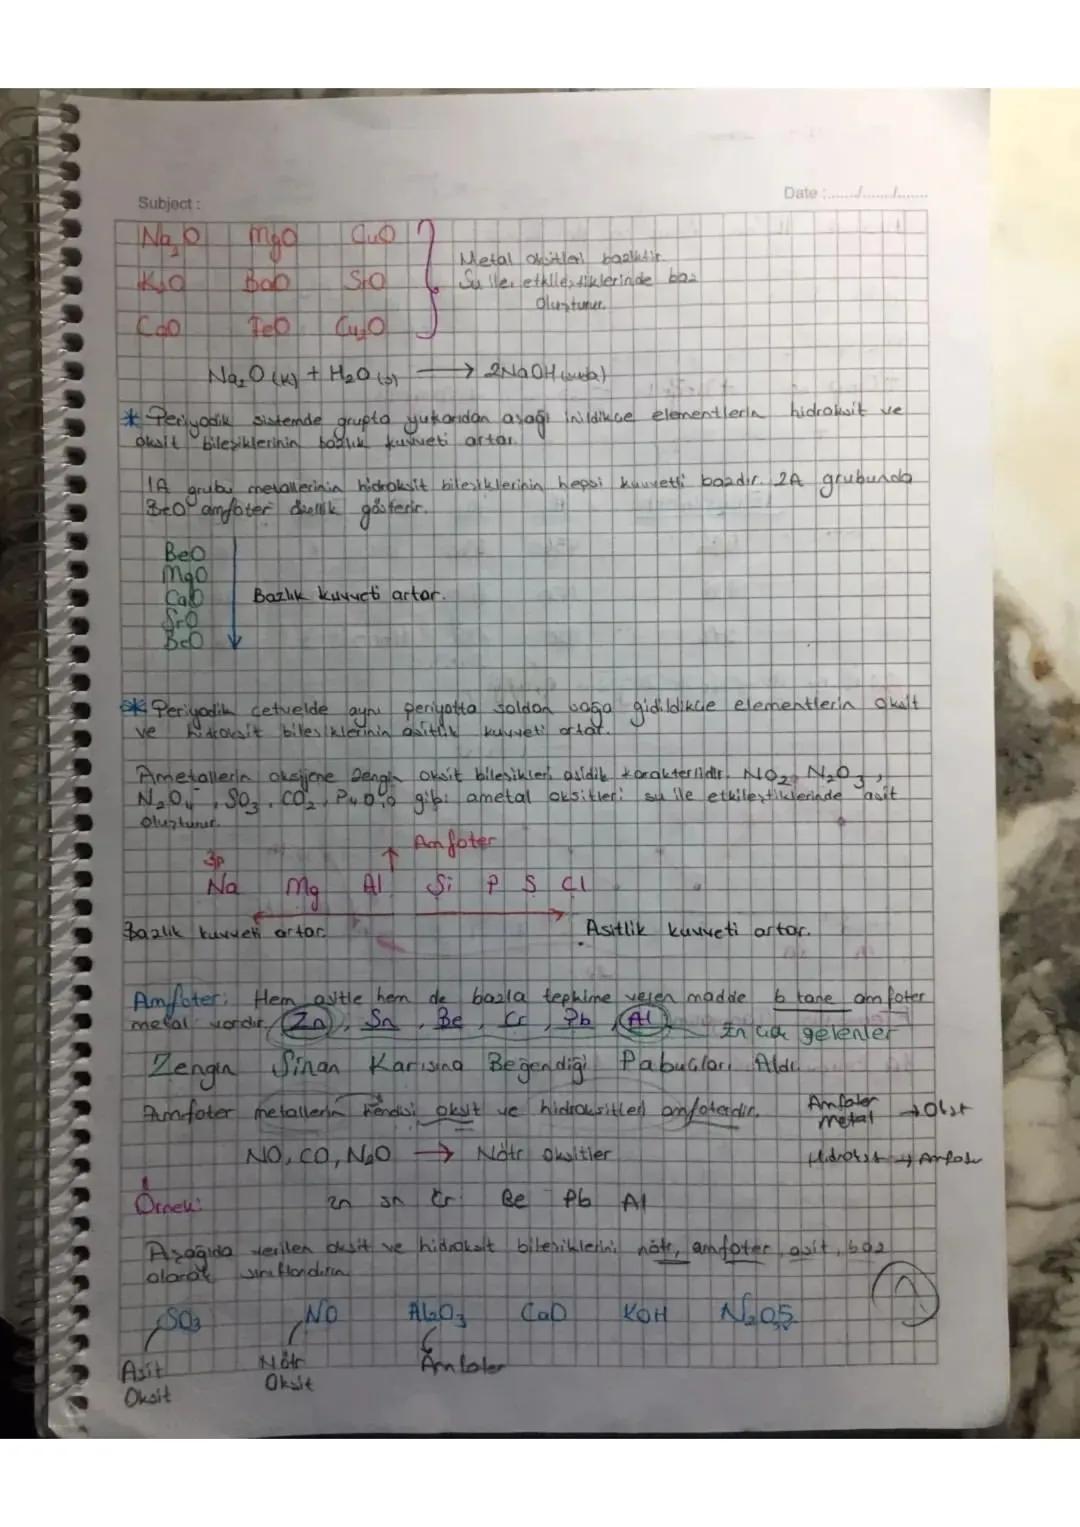 Subject :
Date :....../......./.......
Na2O MgO CuO
K2O BaO SrO
CaO FeO Cu2O
Metal oksitleri baziktir.
Su ile etkileştiklerinde baz
oluşturur.
Na2O (k) + H2O (s) → 2NaOH (suda)
* Periyodik sistemde grupta yukarıdan aşağı inildikce elementlerin hidroksit ve
oksit bileşiklerinin bazlık kuvveti artar.
1A grubu metallerinin hidroksit bileşiklerinin hepsi kuvvetli bazdır. 2A grubunda
BeO amfoter özellik gösterir.
BeO
MgO
CaO
SrO
BaO
Bazlık kuvveti artar.
* Periyodik cetvelde aynı periyotta soldan sağa gidildikce elementlerin oksit
ve hidroksit bileşiklerinin asitlik kuvveti artar.
Ametallerin oksijene zengin oksit bileşikleri asidik karakterlidir. NO2, N2O3,
N2O5, SO3, CO2, P4O10 gibi ametal oksitleri su ile etkileştiklerinde asit
oluşturur.
Amfoter
3p
Na Mg Al Si P S Cl
Bazlık kuvveti artar.
Asitlik kuvveti artar.
Amfoter: Hem asitle hem de bazla tepkime veren madde 6 tane amfoter
metal vardır. Zn, Sn, Be, Cr, Pb, Al En çok gelenler
Zengin Sinan Karısına Beğendiği Pabucları Aldı.
Amfoter metallerin kendisi oksit ve hidroksitleri amfoterdir.
Amfoter
metal → Oksit
NO, CO, N2O → Nötr oksitler
Hidroksit → Amfoter
Örnek:
Zn Sn Cr Be Pb Al
Aşağıda verilen oksit ve hidroksit bileşiklerini nötr, amfoter, asit, baz
olarak sınıflandırın
SO3 NO Al2O3 CaO KOH N2O5
Asit
Oksit
Nötr
Oksit
Amfoter